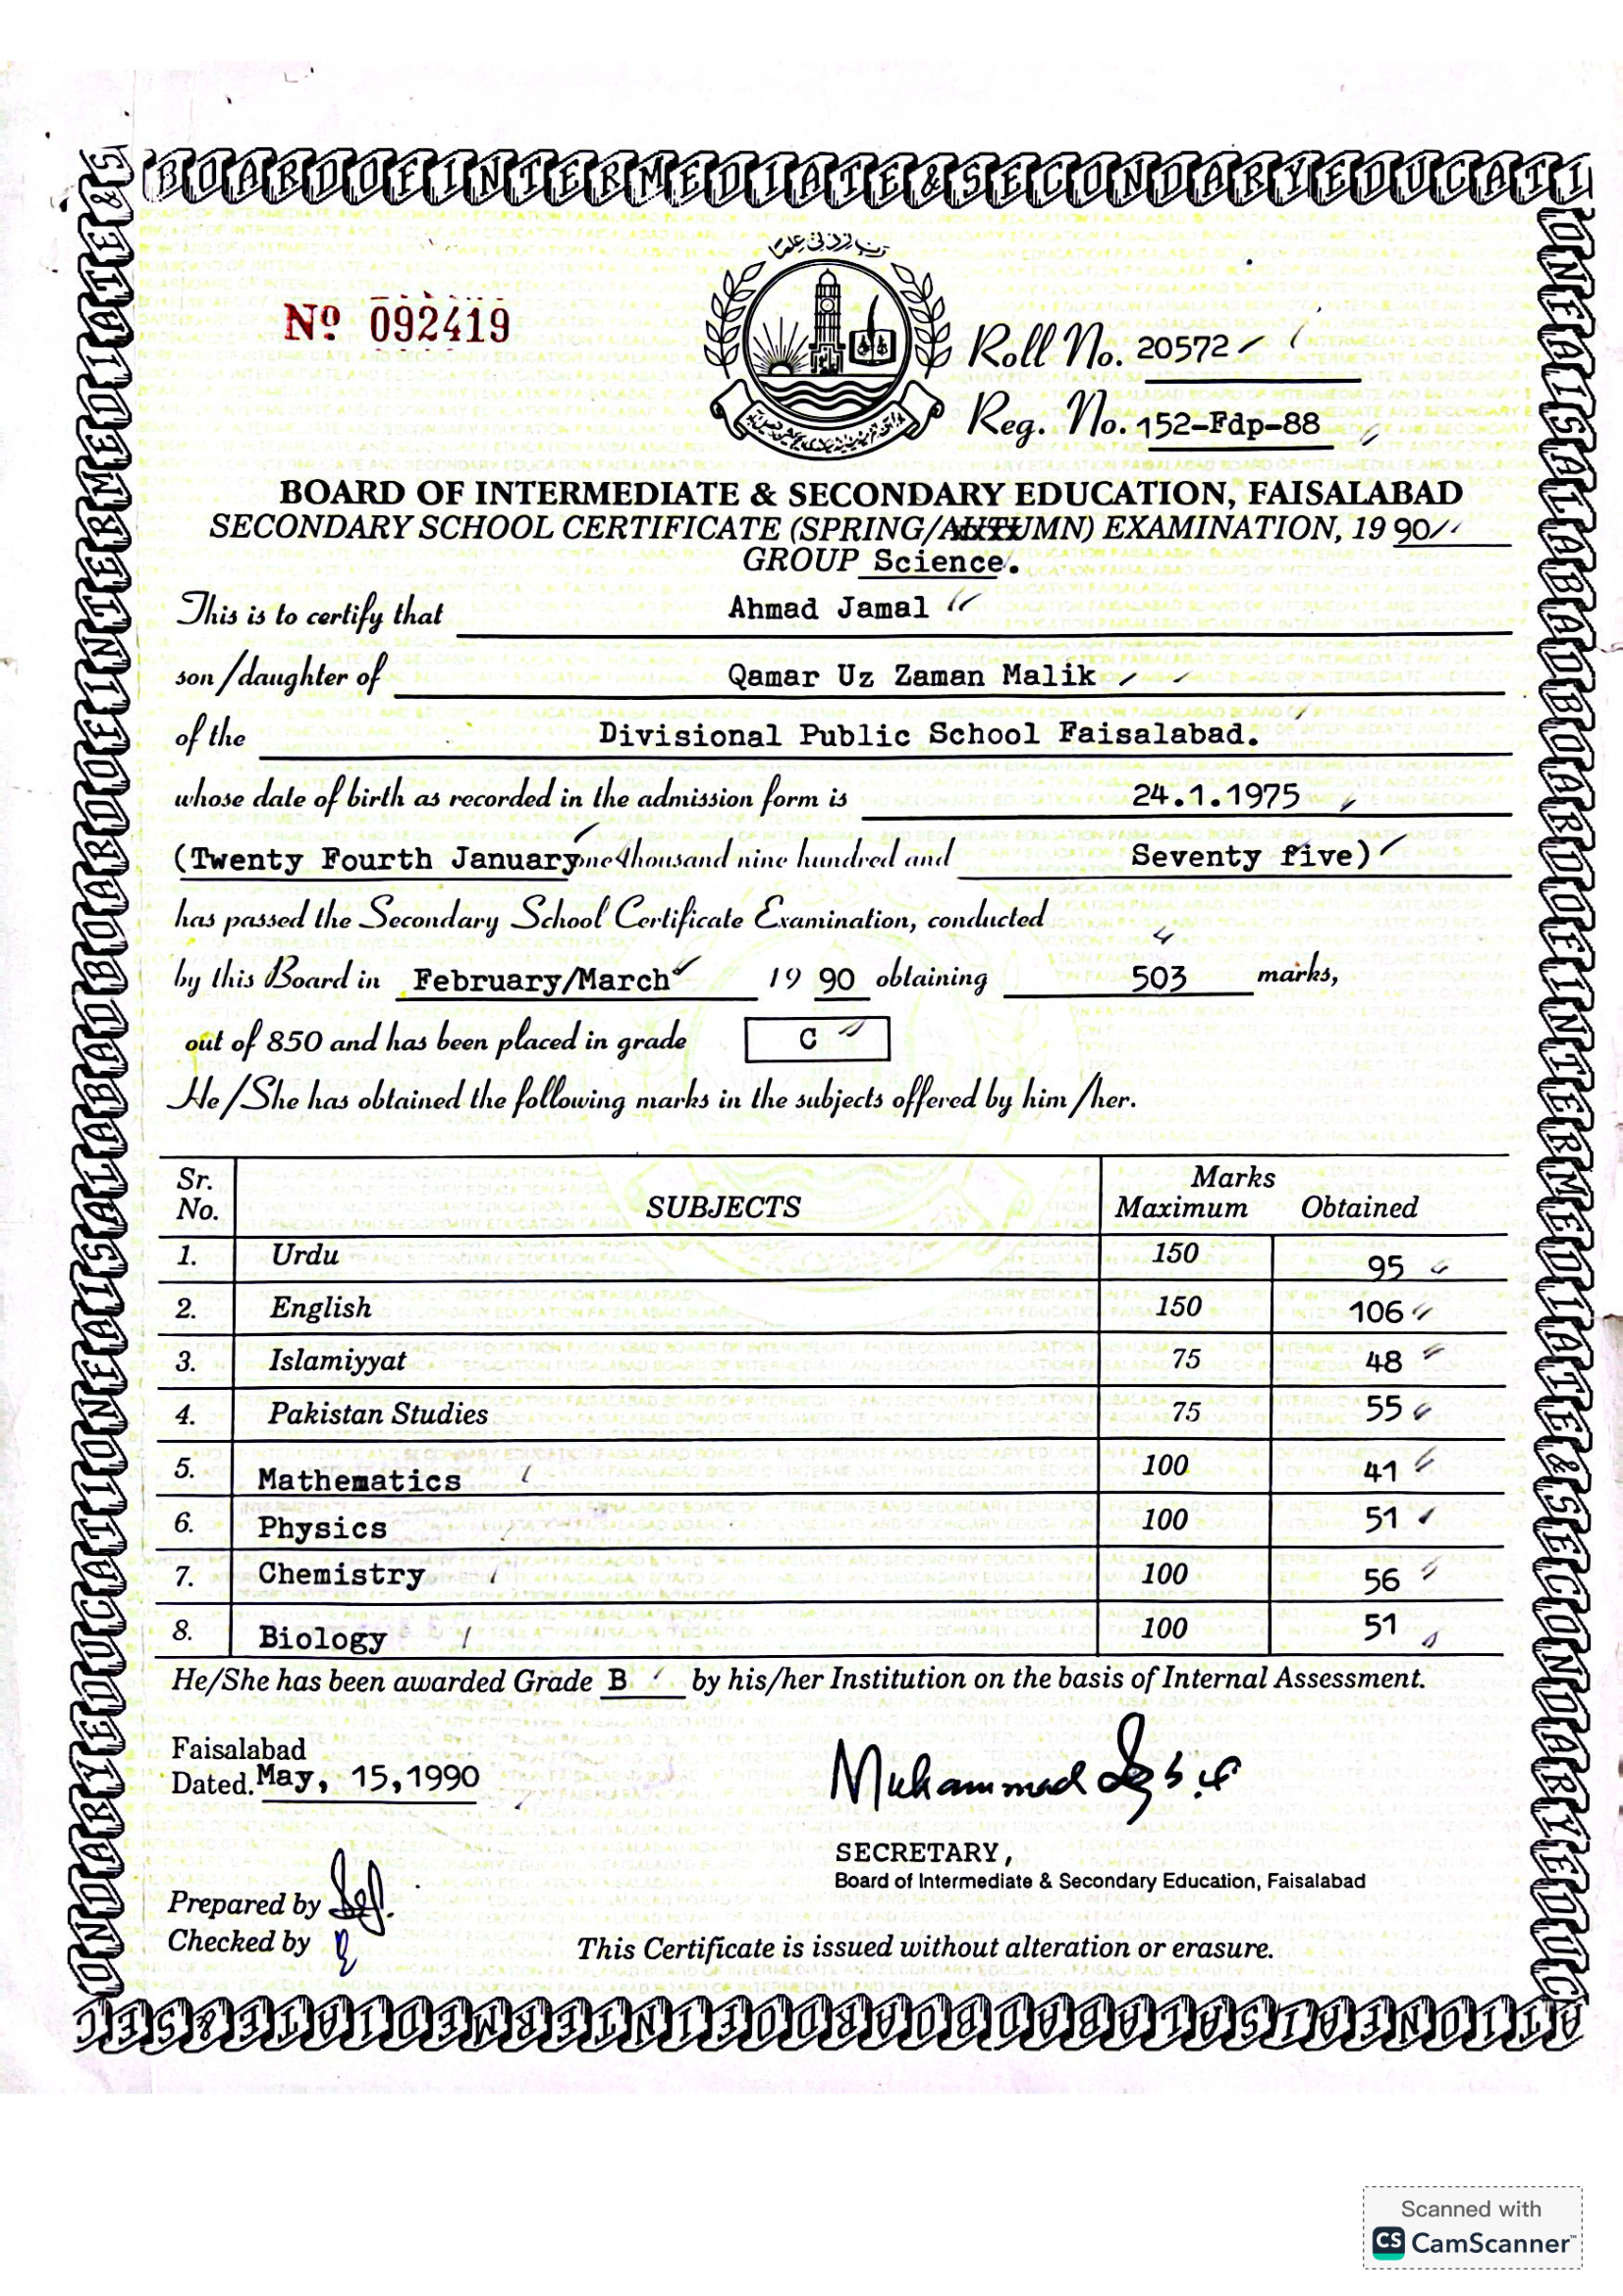 BOARD OF INTERMEDIATE & SECONDARY EDUCATI
رب زدنی علما
Nº 092419
Roll No. 20572
Reg. No. 152-Fdp-88
BOARD OF INTERMEDIATE & SECONDARY EDUCATION, FAISALABAD
SECONDARY SCHOOL CERTIFICATE (SPRING/AUTUMN) EXAMINATION, 1990
GROUP Science.
This is to certify that Ahmad Jamal
son/daughter of Qamar Uz Zaman Malik
of the Divisional Public School Faisalabad.
whose date of birth as recorded in the admission form is 24.1.1975
(Twenty Fourth January one thousand nine hundred and Seventy five)
has passed the Secondary School Certificate Examination, conducted
by this Board in February/March 1990 obtaining 503 marks,
out of 850 and has been placed in grade C
He/She has obtained the following marks in the subjects offered by him/her.
Sr. No. SUBJECTS Marks Maximum Obtained
1. Urdu 150 95
2. English 150 106
3. Islamiyyat 75 48
4. Pakistan Studies 75 55
5. Mathematics 100 41
6. Physics 100 51
7. Chemistry 100 56
8. Biology 100 51
He/She has been awarded Grade B by his/her Institution on the basis of Internal Assessment.
Faisalabad
Dated. May, 15,1990
Muhammad
SECRETARY,
Board of Intermediate & Secondary Education, Faisalabad
Prepared by
Checked by
This Certificate is issued without alteration or erasure.
Scanned with
CS CamScanner